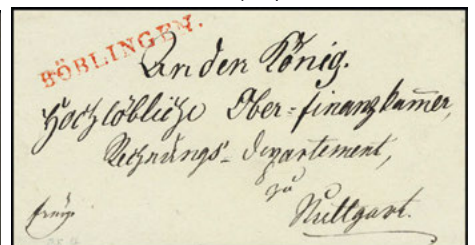 BÖBLINGEN.
An den König.
Hochlöbliche Ober=finanzkam̅er,
Rechnungs=departement,
zu
Stuttgart.